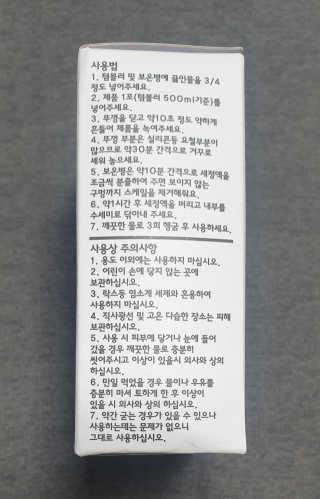 사용법
1. 텀블러 및 보온병에 끓인물을 3/4
정도 넣어주세요.
2. 제품 1포(텀블러 500ml기준)를
넣어주세요.
3. 뚜껑을 닫고 약10초 정도 약하게
흔들어 제품을 녹여주세요.
4. 뚜껑 부분은 실리콘등 요철부분이
많으므로 약30분 간격으로 거꾸로
세워 놓으세요.
5. 보온병은 약10분 간격으로 세정액을
조금씩 분출하여 주면 보이지 않는
구멍까지 스케일을 제거해줘요.
6. 약1시간 후 세정액을 버리고 내부를
수세미로 닦아내 주세요.
7. 깨끗한 물로 3회 헹굼 후 사용하세요.
사용상 주의사항
1. 용도 이외에는 사용하지 마십시오.
2. 어린이 손에 닿지 않는 곳에
보관하십시오.
3. 락스등 염소계 세제와 혼용하여
사용하지 마십시오.
4. 직사광선 및 고온 다습한 장소는 피해
보관하십시오.
5. 사용 시 피부에 닿거나 눈에 들어
갔을 경우 깨끗한 물로 충분히
씻어주시고 이상이 있을시 의사와 상의
하십시오.
6. 만일 먹었을 경우 물이나 우유를
충분히 마셔 토하게 한 후 이상이
있을 시 의사와 상의 하십시오.
7. 약간 굳는 경우가 있을 수 있으나
사용하는데는 문제가 없으니
그대로 사용하십시오.